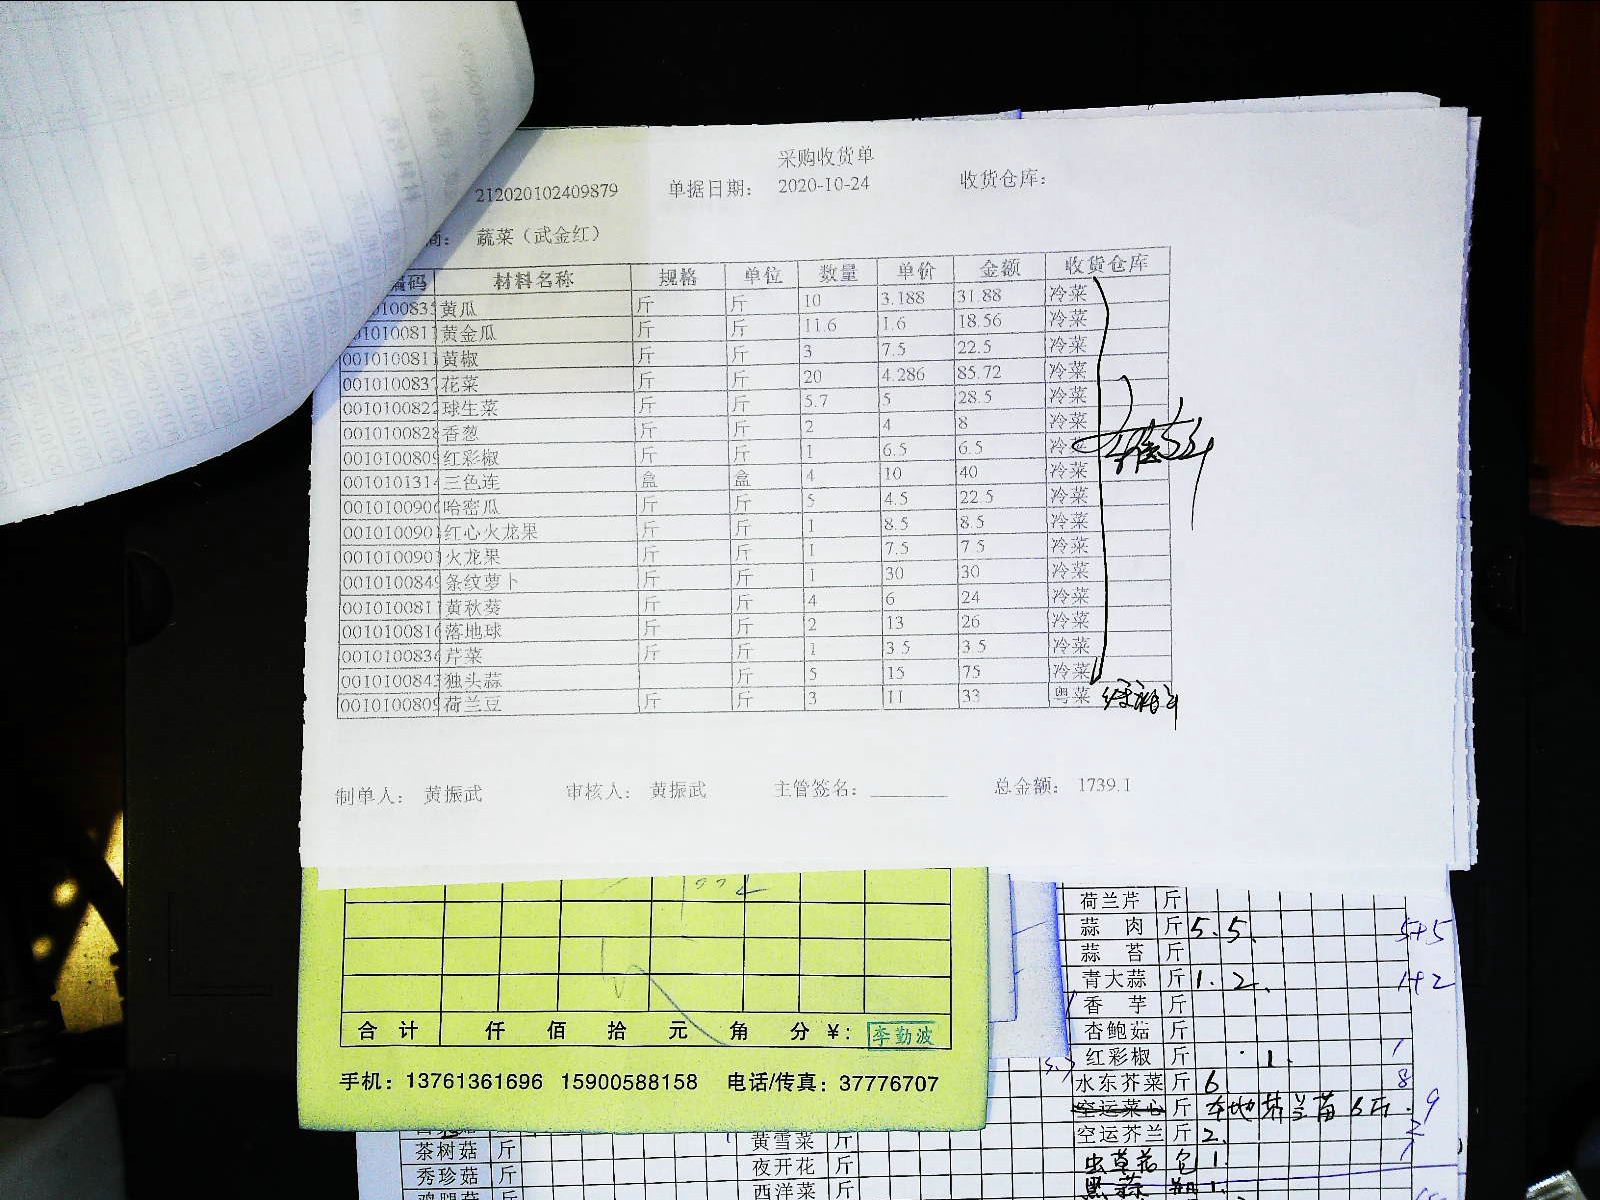 采购收货单
212020102409879 单据日期: 2020-10-24 收货仓库:
商: 蔬菜（武金红）
编码 材料名称 规格 单位 数量 单价 金额 收货仓库
0010100835 黄瓜 斤 斤 10 3.188 31.88 冷菜
0010100811 黄金瓜 斤 斤 11.6 1.6 18.56 冷菜
0010100811 黄椒 斤 斤 3 7.5 22.5 冷菜
0010100837 花菜 斤 斤 20 4.286 85.72 冷菜
0010100822 球生菜 斤 斤 5.7 5 28.5 冷菜
0010100828 香葱 斤 斤 2 4 8 冷菜
0010100809 红彩椒 斤 斤 1 6.5 6.5 冷菜
0010101314 三色连 盒 盒 4 10 40 冷菜
0010100906 哈密瓜 斤 斤 5 4.5 22.5 冷菜
0010100901 红心火龙果 斤 斤 1 8.5 8.5 冷菜
0010100901 火龙果 斤 斤 1 7.5 7.5 冷菜
0010100849 条纹萝卜 斤 斤 1 30 30 冷菜
0010100811 黄秋葵 斤 斤 4 6 24 冷菜
0010100816 落地球 斤 斤 2 13 26 冷菜
0010100836 芹菜 斤 斤 1 3.5 3.5 冷菜
0010100843 独头蒜 斤 5 15 75 冷菜
0010100809 荷兰豆 斤 斤 3 11 33 粤菜
制单人: 黄振武 审核人: 黄振武 主管签名: 总金额: 1739.1
合计 仟 佰 拾 元 角 分 ¥: 李勤波
手机: 13761361696 15900588158 电话/传真: 37776707
荷兰芹 斤
蒜肉 斤 5.5. 5+5
蒜苔 斤
青大蒜 斤 1.2. 1+2
香芋 斤
杏鲍菇 斤
红彩椒 斤 1. 1
水东芥菜 斤 6 8
空运菜心 斤 9
空运芥兰 斤 2. 2
虫草花 包 1. 1
黑蒜 瓶 1.
茶树菇 斤
秀珍菇 斤
鸡腿菇 斤
黄雪菜 斤
夜开花 斤
西洋菜 斤